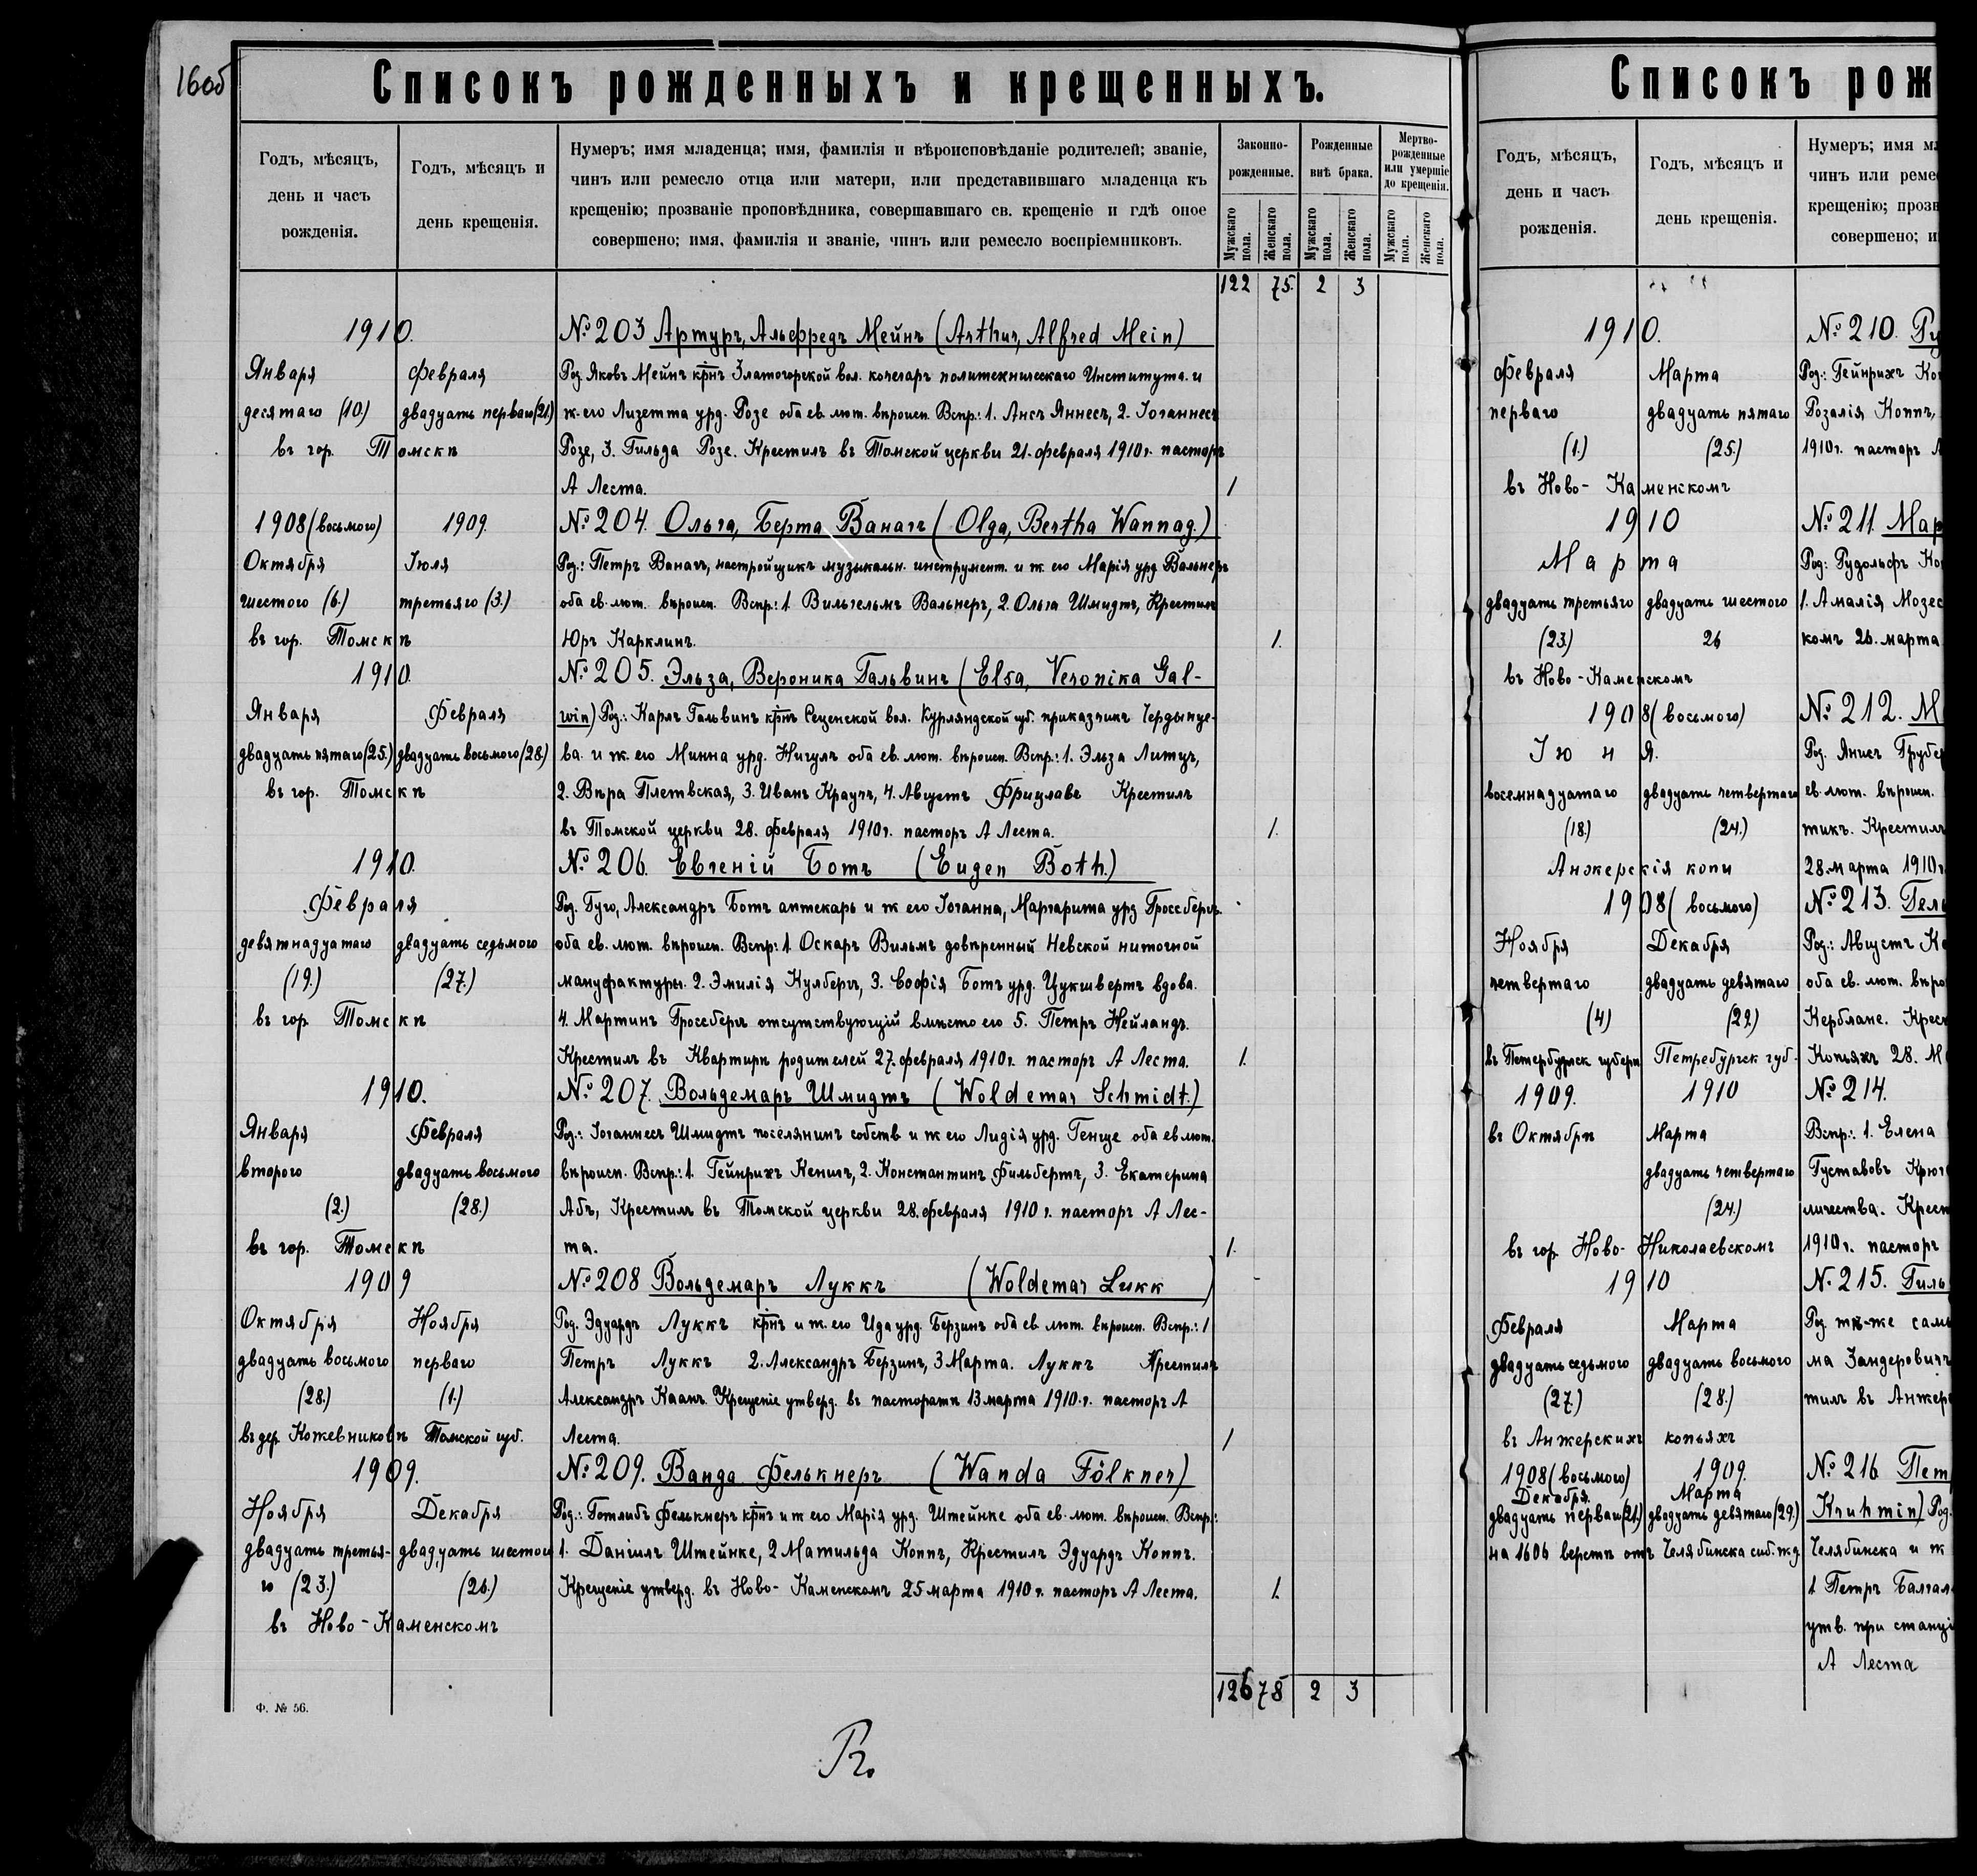 160б
Списокъ рожденныхъ и крещенныхъ.
Годъ, мѣсяцъ, день и часъ рожденія.
Годъ, мѣсяцъ и день крещенія.
Нумеръ; имя младенца; имя, фамилія и вѣроисповѣданіе родителей; званіе,
чинъ или ремесло отца или матери, или представившаго младенца къ
крещенію; прозваніе проповѣдника, совершавшаго св. крещеніе и гдѣ оное
совершено; имя, фамилія и званіе, чинъ или ремесло воспріемниковъ.
Законно-рожденные.
Рожденные внѣ брака.
Мертво-рожденные или умершіе до крещенія.
Мужскаго пола. Женскаго пола. Мужскаго пола. Женскаго пола. Мужскаго пола. Женскаго пола.
122 75. 2 3
1910. №203 Артуръ, Альфредъ Мейнъ (Arthur, Alfred Mein)
Января Февраля Род. Яковъ Мейнъ крнъ Златогорской вол. кочегаръ политехническаго Института. и
десятаго (10.) двадцать перваго (21.) ж. его Лизетта урд. Розе оба ев. лют. вѣроисп. Вспр.: 1. Ансъ Яннесъ, 2. Іоганнесъ
въ гор. Томскѣ Розе, 3. Гильда Розе. Крестилъ въ Томской церкви 21. февраля 1910 г. пасторъ
А Леста. 1
1908 (восьмого) 1909. №204. Ольга, Берта Ванагъ (Olga, Bertha Wannag.)
Октября Іюля Род.: Петръ Ванагъ, настройщикъ музыкальн. инструмент. и ж. его Марія урд Вальнеръ
шестого (6.) третьяго (3.) оба ев. лют. вѣроисп. Вспр.: 1. Вильгельмъ Вальнеръ, 2. Ольга Шмидтъ, Крестилъ
въ гор. Томскѣ Юръ Карклинъ. 1.
1910. №205. Эльза, Вероника Гальвинъ (Elsa, Veronika Gal-
Января Февраля win) Род.: Карлъ Гальвинъ крнъ Сеценской вол. Курляндской губ. приказчикъ Чердынце-
двадцать пятаго (25.) двадцать восьмого (28.) ва. и ж. его Минна урд. Нигулъ оба ев. лют. вѣроисп. Вспр.: 1. Эльза Литцъ,
въ гор. Томскѣ 2. Вѣра Плетвская, 3. Иванъ Крауцъ, 4. Августъ Фрицлавъ Крестилъ
въ Томской церкви 28. февраля 1910 г. пасторъ А Леста. 1.
1910. №206. Евгеній Ботъ (Eugen Both.)
Февраля Род. Гуго, Александръ Ботъ аптекарь и ж его Іоганна, Маргарита урд Гроссбергъ.
девятнадцатаго двадцать седьмого оба ев. лют. вѣроисп. Вспр: 1. Оскаръ Вильмъ довѣренный Невской ниточной
(19.) (27.) мануфактуры. 2. Эмилія Кулбергъ, 3. Софія Ботъ урд. Цукшвертъ вдова.
въ гор. Томскѣ 4. Мартинъ Гроссбергъ отсутствующій вмѣсто его 5. Петръ Нейландъ.
Крестилъ въ Квартирѣ родителей 27. февраля 1910 г. пасторъ А Леста. 1.
1910. №207. Вольдемаръ Шмидтъ (Woldemar Schmidt.)
Января Февраля Род.: Іоганнесъ Шмидтъ поселянинъ собств и ж его Лидія урд. Генце оба ев лют.
второго двадцать восьмого вѣроисп. Вспр.: 1. Гейнрихъ Кенигъ, 2. Константинъ Фильбертъ, 3. Екатерина
(2.) (28.) Абъ, Крестилъ въ Томской церкви 28. февраля 1910 г. пасторъ А Лес-
въ гор. Томскѣ та. 1.
1909 №208 Вольдемаръ Луккъ (Woldemar Lukk)
Октября Ноября Род. Эдуардъ Луккъ крнъ и ж. его Ида урд. Берзинъ оба ев лют. вѣроисп. Вспр.: 1
двадцать восьмого перваго Петръ Луккъ 2. Александръ Берзинъ, 3 Марта. Луккъ Крестилъ
(28.) (1.) Александръ Каанъ. Крещеніе утверд. въ пасторатѣ 13 марта 1910 г. пасторъ А
въ дер. Кожевниковѣ Томской губ. Леста. 1
1909. №209. Ванда Фелькнеръ (Wanda Fölkner)
Ноября Декабря Род.: Готлибъ Фелькнеръ крнъ и ж его Марія урд. Штейнке оба ев. лют. вѣроисп. Вспр.:
двадцать третья- двадцать шестого 1. Даніилъ Штейнке, 2 Матильда Коппъ, Крестилъ Эдуардъ Коппъ.
го (23.) (26.) Крещеніе утверд. въ Ново-Каменскомъ 25 марта 1910 г. пасторъ А Леста. 1.
въ Ново-Каменскомъ
126 78 2 3
Ф. № 56.
Списокъ рож
Годъ, мѣсяцъ, день и часъ рожденія.
Годъ, мѣсяцъ и день крещенія.
Нумеръ; имя мл
чинъ или реме
крещенію; прозв
совершено; и
1910. №210. Ру
Февраля Марта Род.: Гейнрихъ Ко
перваго двадцать пятаго Розалія Коппъ,
(1.) (25.) 1910 г. пасторъ А
въ Ново-Каменскомъ
1910 №211. Мар
Марта Род: Рудольфъ Ко
двадцать третьяго двадцать шестого 1. Амалія Мозес
(23.) 26 комъ 26. марта
въ Ново-Каменскомъ
1908 (восьмого) №212. М
Іюня. Род. Янисъ Грубе
восемнадцатаго двадцать четвертаго ев. лют. вѣроисп.
(18.) (24.) тикъ. Крестилъ
Анжерскія копи 28. марта 1910 г.
1908 (восьмого) №213. Гель
Ноября Декабря Род.: Августъ К
четвертаго двадцать девятаго оба ев. лют. вѣро
(4) (29.) Керблане. Крес
въ Петербургск губерн Петребургск губ. Копьяхъ 28. М
1909. 1910 №214.
въ Октябрѣ Марта Вспр.: 1. Елена
двадцать четвертаго Густавовъ Крюг
(24.) личества. Крест
въ гор. Ново-Николаевскомъ 1910 г. пасторъ
1910 №215. Гиль
Февраля Марта Род. тѣ-же самы
двадцать седьмого двадцать восьмого ма Зандеровичъ
(27.) (28.) тилъ въ Анжер
въ Анжерскихъ копьяхъ
1908 (восьмого) 1909. №216 Пет
Декабря. Марта
двадцать перваго (21.) двадцать девятаго (29.) Kruhmin) Род.
на 1606 верстѣ отъ Челябинска сиб. ж д Челябинска и ж
1 Петръ Балгал
утв. при станці
А Леста